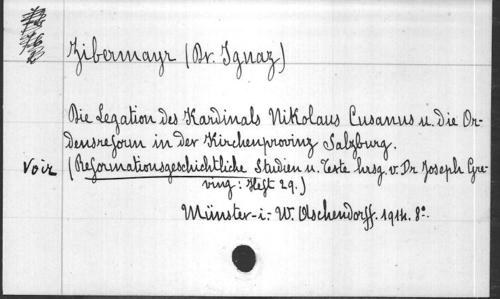 Zibermayr (Dr. Ignaz)
Die Legation des Kardinals Nikolaus Cusanus u. die Or-
densreform in der Kirchenprovinz Salzburg.
Voir (Reformationsgeschichtliche Studien u. Texte hrsg. v. Dr Joseph Gre-
ving: Heft 29.)
Münster-i.-W. Aschendorff. 1914. 8°.